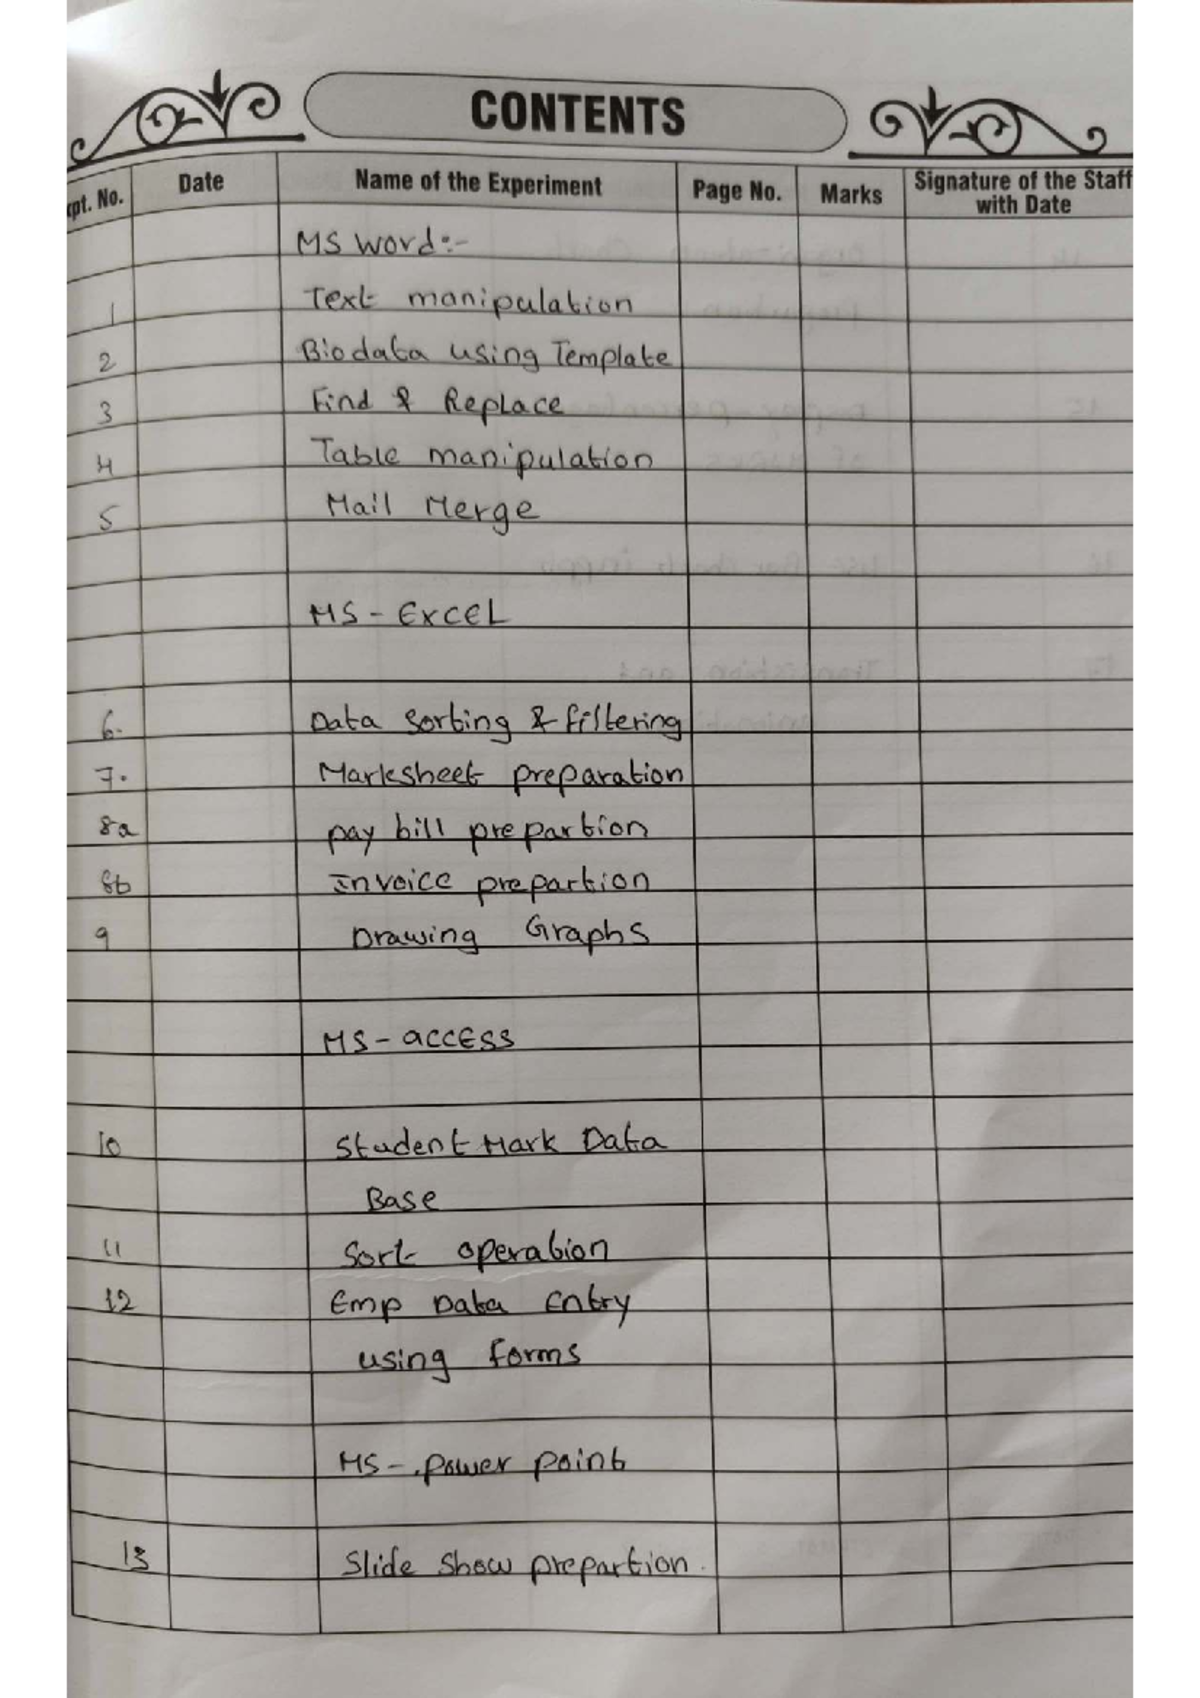 CONTENTS
Expt. No. Date Name of the Experiment Page No. Marks Signature of the Staff with Date
MS Word:-
1 Text manipulation
2 Biodata using Template
3 Find & Replace
4 Table manipulation
5 Mail Merge
MS - EXCEL
6. Data Sorting & filtering
7. Marksheet preparation
8a pay bill prepartion
8b Invoice prepartion
9 Drawing Graphs
MS - access
10 Student Mark Data
Base
11 Sort operation
12 Emp Data Entry
using forms
MS - power point
13 Slide Show prepartion.